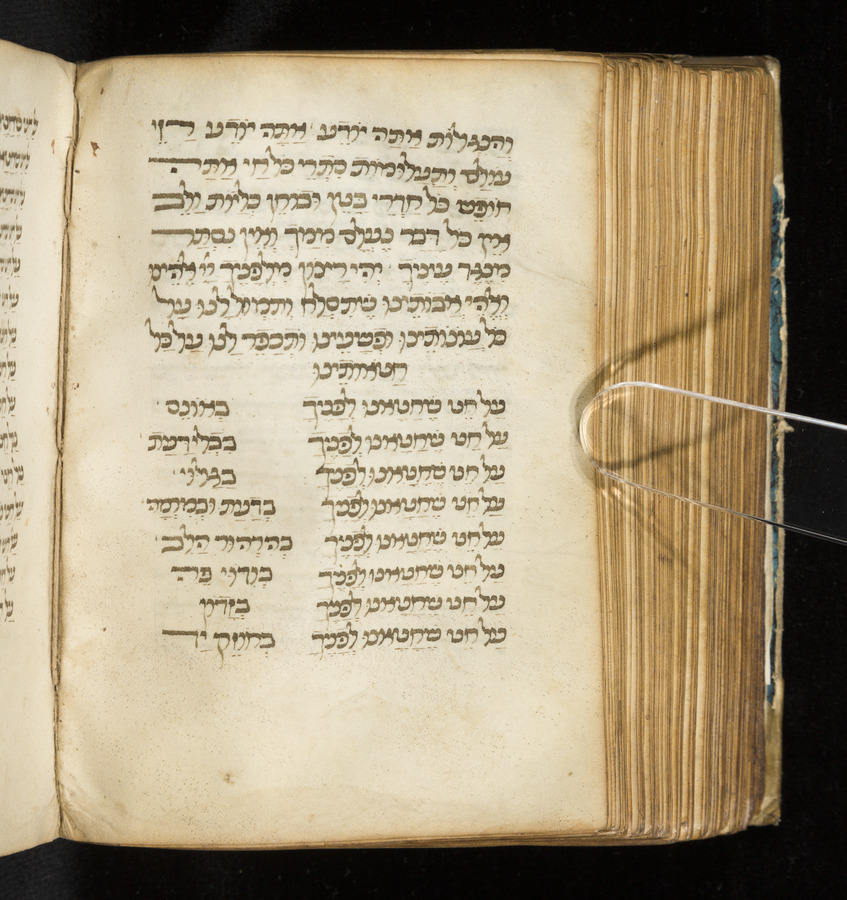 והנגלות אתה יודע אתה יודע רזי
עולם ותעלומות סתרי כל חי אתה
חופש כל חדרי בטן ובוחן כליות ולב
אין כל דבר נעלם ממך ואין נסתר
מנגד עיניך יהי רצון מלפניך יי אלהינו
ואלהי אבותינו שתסלח ותמחול לנו על
כל עונותינו ופשעינו ותכפר לנו על כל
חטאותינו
על חט שחטאנו לפניך באונס
על חט שחטאנו לפניך בבלי דעת
על חט שחטאנו לפניך בגלוי
על חט שחטאנו לפניך בדעת ובמרמה
על חט שחטאנו לפניך בהרהור הלב
על חט שחטאנו לפניך בודוי פה
על חט שחטאנו לפניך בזדון
על חט שחטאנו לפניך בחוזק יד